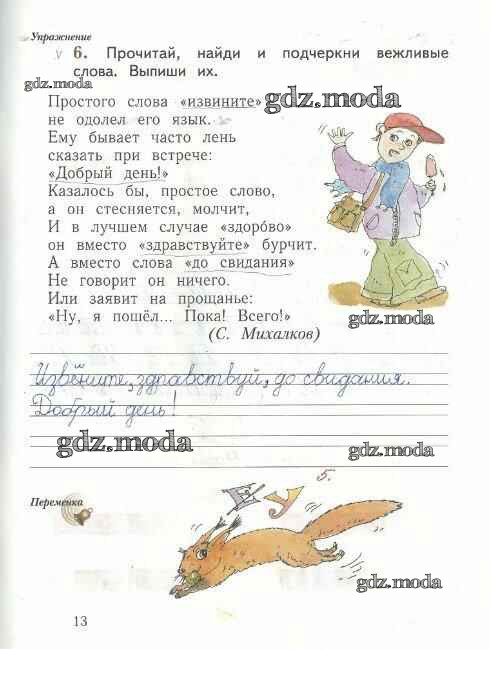 Упражнение
6. Прочитай, найди и подчеркни вежливые
слова. Выпиши их.
gdz.moda
Простого слова «извините» gdz.moda
не одолел его язык.
Ему бывает часто лень
сказать при встрече:
«Добрый день!»
Казалось бы, простое слово,
а он стесняется, молчит,
И в лучшем случае «здоро́во»
он вместо «здравствуйте» бурчит.
А вместо слова «до свидания»
Не говорит он ничего.
Или заявит на прощанье:
«Ну, я пошёл... Пока! Всего!» gdz.moda
(С. Михалков)
Извените, здравствуй, до свидания.
Добрый день!
gdz.moda gdz.moda
5.
Переменка
Е У
gdz.moda
13